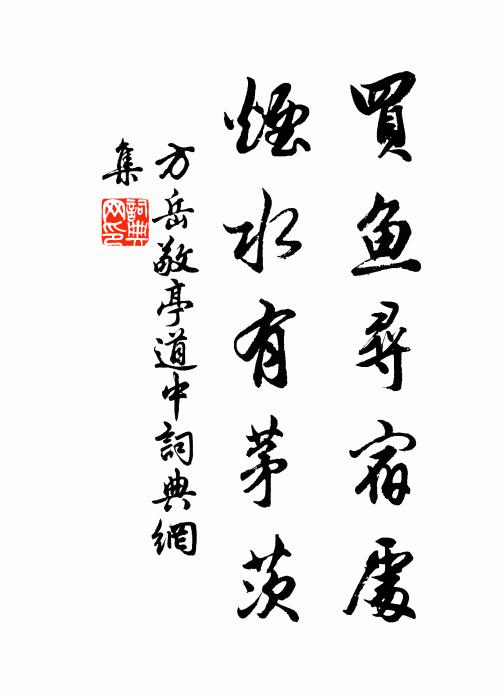 買魚尋宿處
煙水有茅茨
方岳敬亭道中詞典網
集
詞典
网印